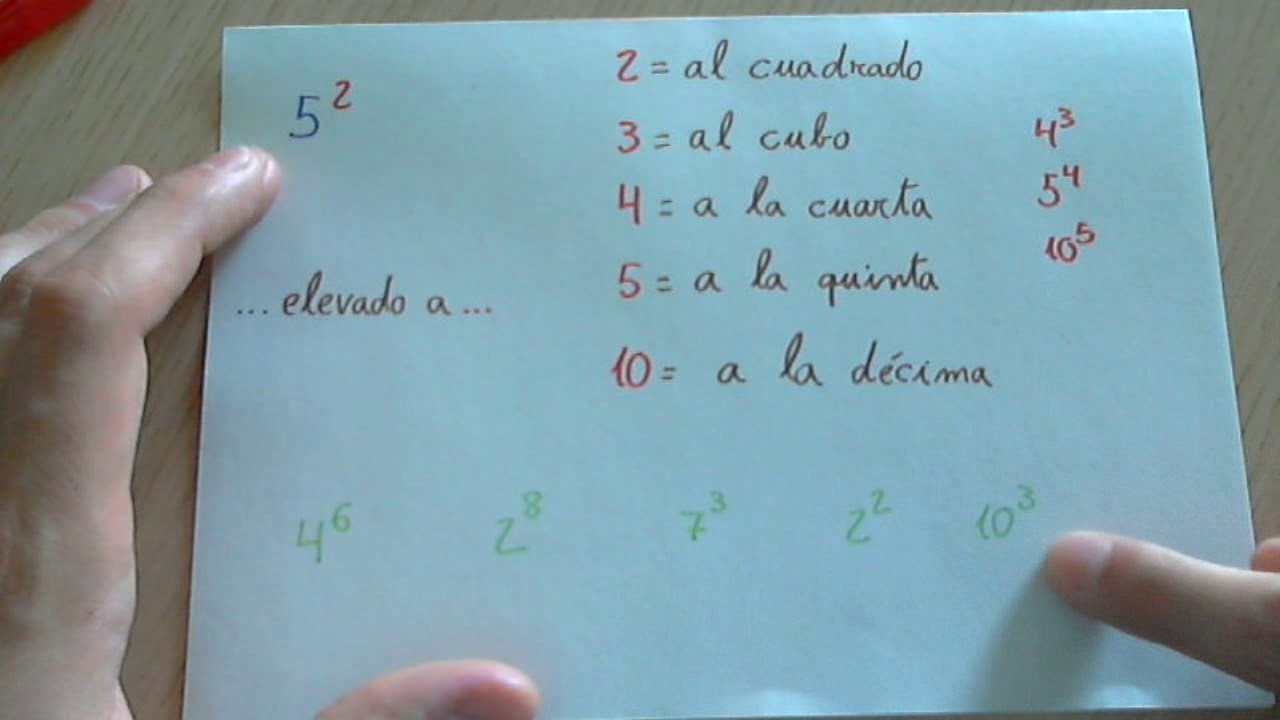 5²
2 = al cuadrado
3 = al cubo
4 = a la cuarta
5 = a la quinta
10 = a la décima
4³
5⁴
10⁵
... elevado a ...
4⁶ 2⁸ 7³ 2² 10³